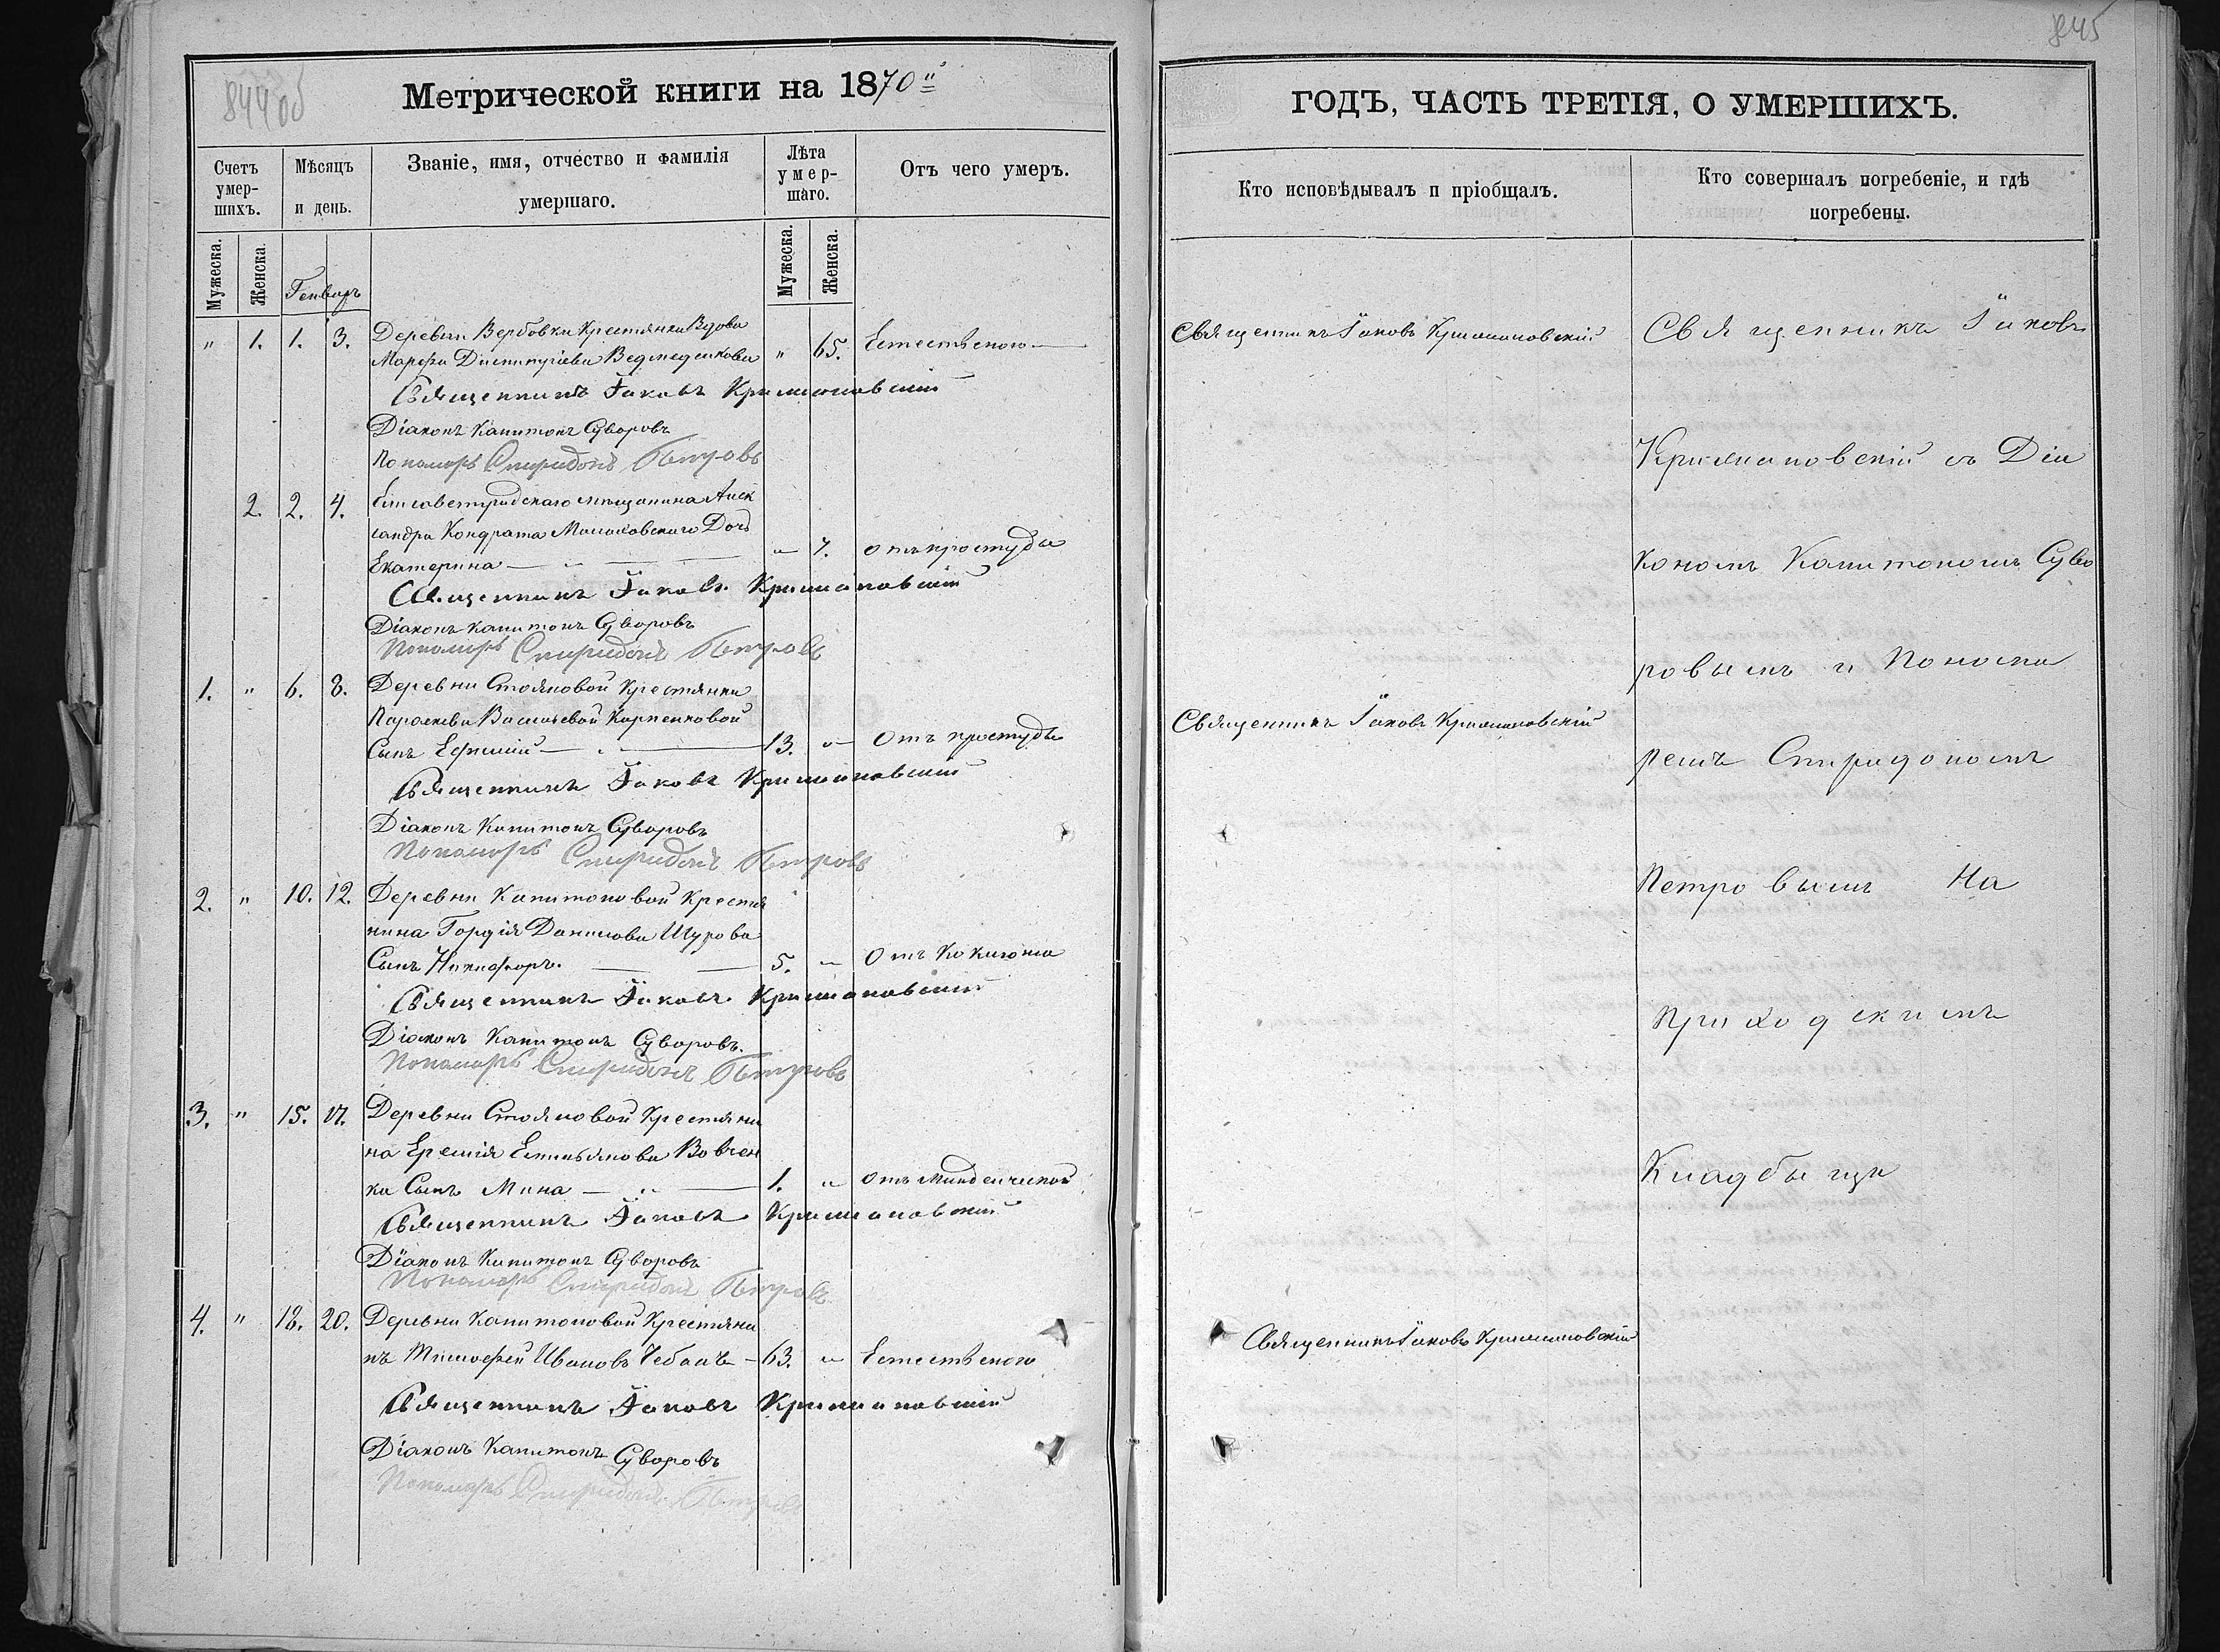 844 об
Метрической книги на 1870й
Счетъ умер-шихъ.
Мѣсяцъ и день.
Званіе, имя, отчество и фамилія
умершаго.
Лѣта умер-шаго.
Отъ чего умеръ.
Мужеска.
Женска.
Генварь
Мужеска.
Женска.
" 1. 1. 3. Деревни Вербовки Крестянка Вдова
Марфа Ведмеденкова " 65. Естественою
Священникъ Іаковъ
Діаконъ Капитонъ Суворовъ
Пономарь Спиридонъ Петровъ
2. 2. 4. Елисаветградскаго мещанина Алек
сандра Кондрата Дочь
Екатерина " 7. отъ простуды
Священникъ Іаковъ
Діаконъ Капитонъ Суворовъ
Пономарь Спиридонъ Петровъ
1. " 6. 8. Деревни Стояновой Крестянки
Параскевы Васильевой Карпенковой
Сынъ Ефимій 13. " Отъ простуды
Священникъ Іаковъ
Діаконъ Капитонъ Суворовъ
Пономарь Спиридонъ Петровъ
2. " 10. 12. Деревни Капитоновой Крестя
нина Гордія Данилова Щурова
Сынъ Никифоръ. 5. " Отъ Коклюша
Священникъ Іаковъ
Діаконъ Капитонъ Суворовъ.
Пономарь Спиридонъ Петровъ
3. " 15. 17. Деревни Стояновой Крестяни
на Еремія Емельянова Вовчен
ка Сынъ Мина 1. " Отъ Младенческой
Священникъ Іаковъ
Діаконъ Капитонъ Суворовъ
Пономарь Спиридонъ Петровъ
4. " 18. 20. Деревни Капитоновой Крестяни
нъ Тимофей Ивановъ Чебанъ 63. " Естественою
Священникъ Іаковъ
Діаконъ Капитонъ Суворовъ
Пономарь Спиридонъ Петровъ
845
ГОДЪ, ЧАСТЬ ТРЕТІЯ, О УМЕРШИХЪ.
Кто исповѣдывалъ и пріобщалъ.
Кто совершалъ погребеніе, и гдѣ
погребены.
Священникъ Іаковъ
Священникъ Іаковъ
Священникъ Іаковъ
Священникъ Іаковъ
съ Діа
кономъ Капитономъ Суво
ровымъ и Понома
ремъ Спиридономъ
Петровымъ На
Приходскимъ
Кладбищи